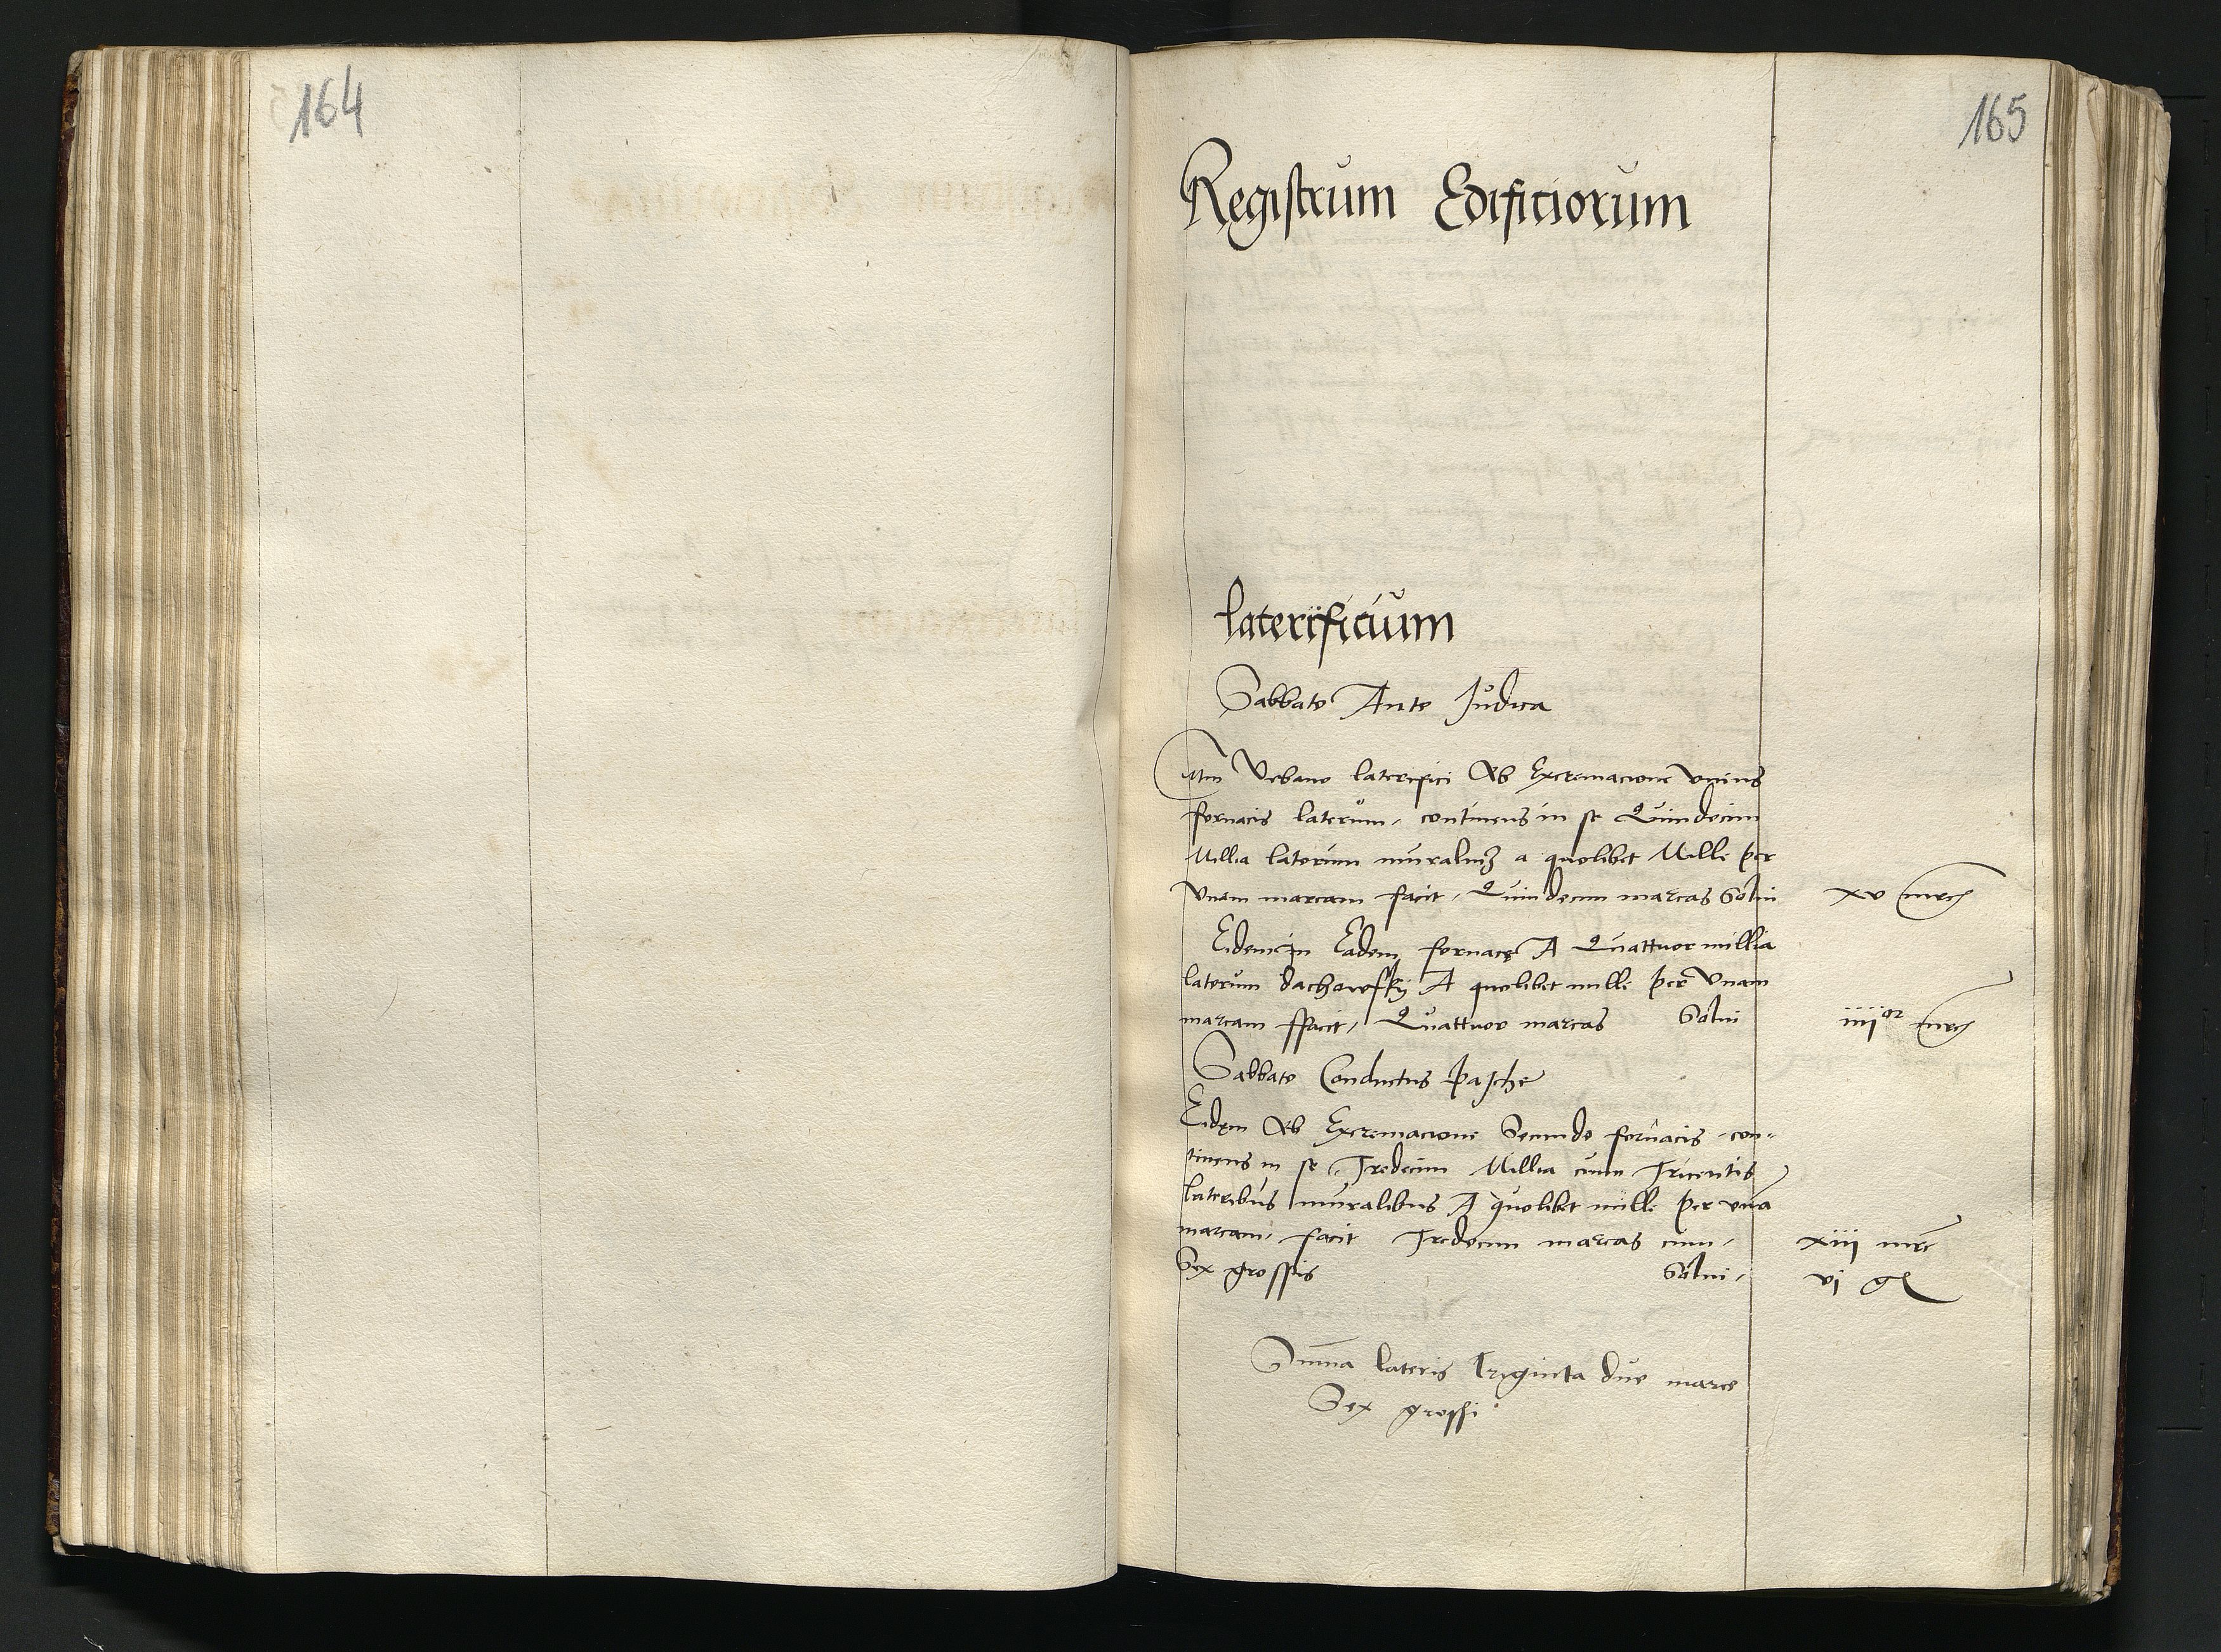 164
165
Registrum Edificiorum
laterificium
Sabbato Ante Judica
Urbano laterifici Ab Excremacione vnius
fornacis laterum, continens in se Quindecim
Millia laterum muralium a quolibet Mille per
vnam marcam facit, Quindecim marcas Solui
xv mrc
Eidem in Eadem fornace A Quattuor millia
laterum dachowsky A quolibet mille per vnam
marcam ffacit, Quattuor marcas Solui
iiiior mrc
Sabbato Conductus pasche
Eidem Ab Excremacione Secunde fornacis con-
tinens in se Tredecim Millia cum Tricentis
lateribus muralibus A quolibet mille per vna
marcam, facit Tredecim marcas cum
xiij mrc
Sex grossis Solui
vj g
Summa lateris Triginta due marce
Sex grossi